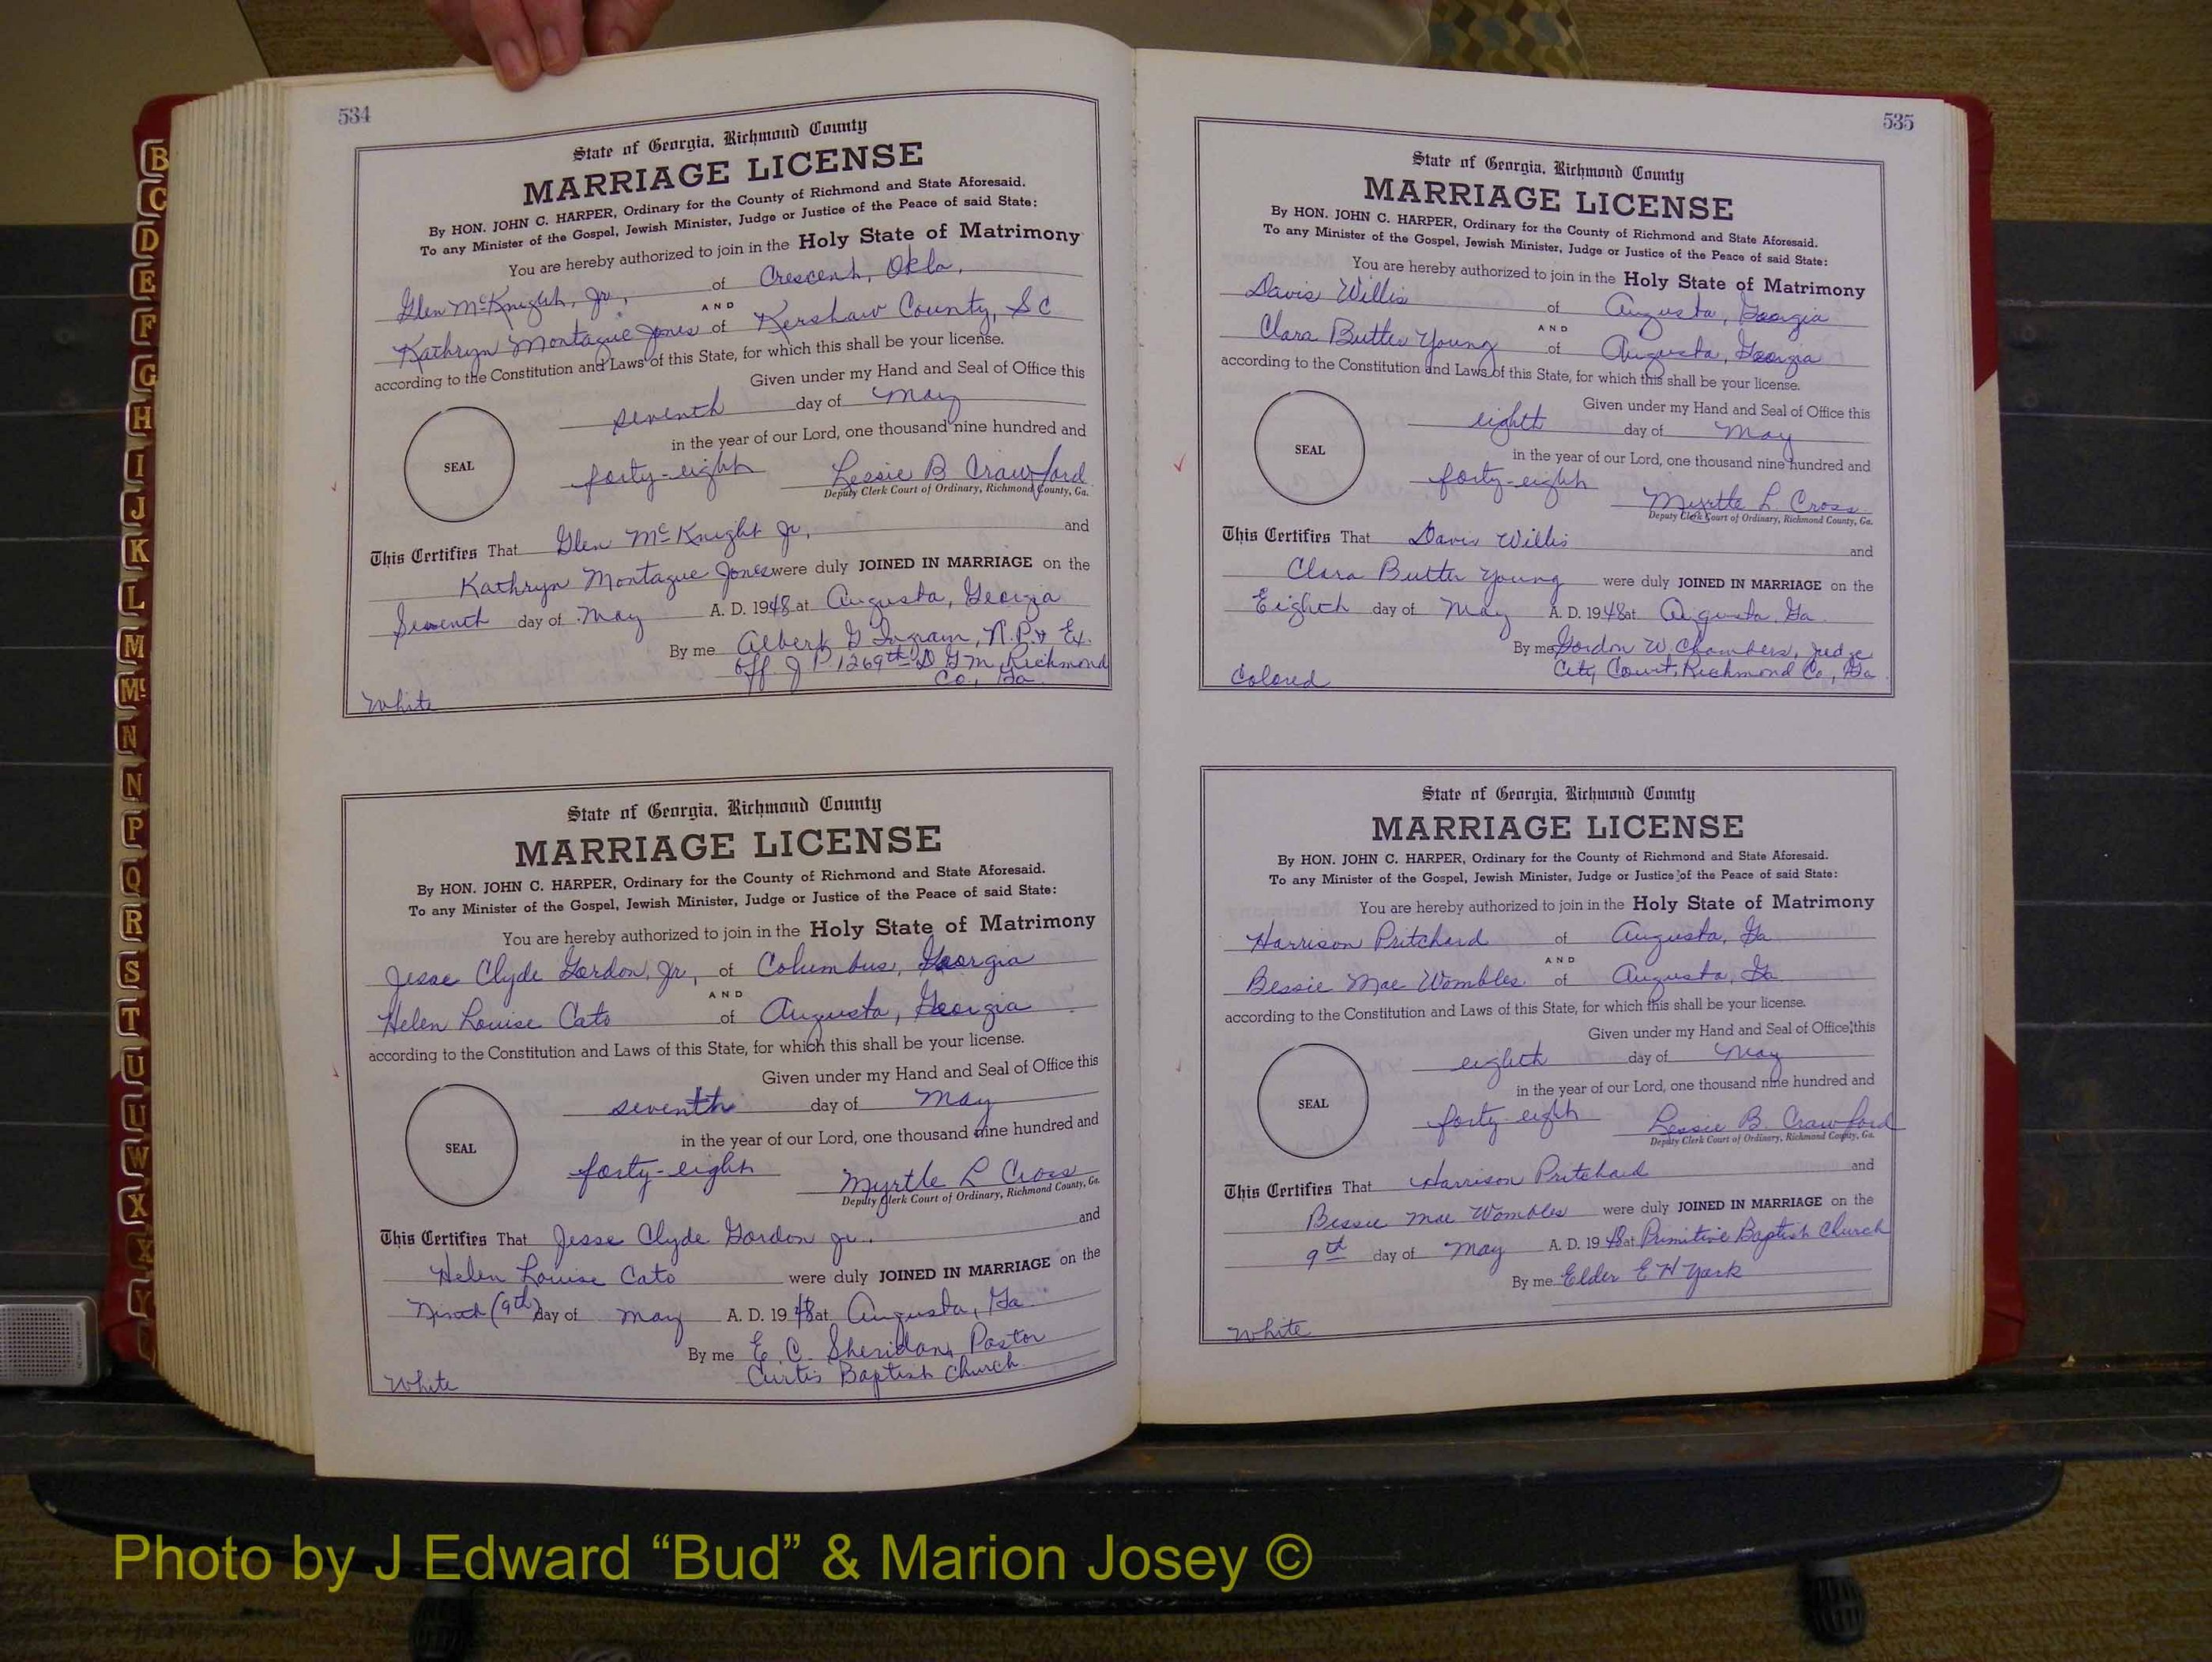 534
State of Georgia, Richmond County
MARRIAGE LICENSE
By HON. JOHN C. HARPER, Ordinary for the County of Richmond and State Aforesaid.
To any Minister of the Gospel, Jewish Minister, Judge or Justice of the Peace of said State:
You are hereby authorized to join in the Holy State of Matrimony
Glen McKnight, Jr, of Crescent, Okla,
AND
Kathryn Montague Jones of Kershaw County, SC
according to the Constitution and Laws of this State, for which this shall be your license.
Given under my Hand and Seal of Office this
seventh day of May
in the year of our Lord, one thousand nine hundred and
SEAL
forty-eight Lessie B Crawford
Deputy Clerk Court of Ordinary, Richmond County, Ga.
This Certifies That Glen McKnight Jr, and
Kathryn Montague Jones were duly JOINED IN MARRIAGE on the
Seventh day of May A. D. 1948 at Augusta, Georgia
By me Albert G Ingram, N.P. & Ex.
Off. J P 1269th D G M, Richmond
Co., Ga.
White
State of Georgia, Richmond County
MARRIAGE LICENSE
By HON. JOHN C. HARPER, Ordinary for the County of Richmond and State Aforesaid.
To any Minister of the Gospel, Jewish Minister, Judge or Justice of the Peace of said State:
You are hereby authorized to join in the Holy State of Matrimony
Jesse Clyde Gordon, Jr, of Columbus, Georgia
AND
Helen Louise Cato of Augusta, Georgia
according to the Constitution and Laws of this State, for which this shall be your license.
Given under my Hand and Seal of Office this
seventh day of May
in the year of our Lord, one thousand nine hundred and
SEAL
forty-eight Myrtle L Cross
Deputy Clerk Court of Ordinary, Richmond County, Ga.
This Certifies That Jesse Clyde Gordon Jr. and
Helen Louise Cato were duly JOINED IN MARRIAGE on the
Ninth (9th) day of May A. D. 1948 at Augusta, Ga.
By me E. C. Sheridan, Pastor
Curtis Baptist Church.
White
535
State of Georgia, Richmond County
MARRIAGE LICENSE
By HON. JOHN C. HARPER, Ordinary for the County of Richmond and State Aforesaid.
To any Minister of the Gospel, Jewish Minister, Judge or Justice of the Peace of said State:
You are hereby authorized to join in the Holy State of Matrimony
Davis Willis of Augusta, Georgia
AND
Clara Butler Young of Augusta, Georgia
according to the Constitution and Laws of this State, for which this shall be your license.
Given under my Hand and Seal of Office this
eighth day of May
in the year of our Lord, one thousand nine hundred and
SEAL
forty-eight Myrtle L. Cross
Deputy Clerk Court of Ordinary, Richmond County, Ga.
This Certifies That Davis Willis and
Clara Butler Young were duly JOINED IN MARRIAGE on the
Eighth day of May A. D. 1948 at Augusta, Ga.
By me Gordon W. Chambers, Judge
City Court, Richmond Co., Ga
Colored
State of Georgia, Richmond County
MARRIAGE LICENSE
By HON. JOHN C. HARPER, Ordinary for the County of Richmond and State Aforesaid.
To any Minister of the Gospel, Jewish Minister, Judge or Justice of the Peace of said State:
You are hereby authorized to join in the Holy State of Matrimony
Harrison Pritchard of Augusta, Ga
AND
Bessie Mae Wombles of Augusta, Ga
according to the Constitution and Laws of this State, for which this shall be your license.
Given under my Hand and Seal of Office this
eighth day of May
in the year of our Lord, one thousand nine hundred and
SEAL
forty-eight Lessie B. Crawford
Deputy Clerk Court of Ordinary, Richmond County, Ga.
This Certifies That Harrison Pritchard and
Bessie Mae Wombles were duly JOINED IN MARRIAGE on the
9th day of May A. D. 1948 at Primitive Baptist Church
By me Elder E H York
White
B
C
D
E
F
G
H
I
J
K
L
M
Mc
N
N
P
Q
R
S
T
U
U
W
X
X
Y
Photo by J Edward “Bud” & Marion Josey ©